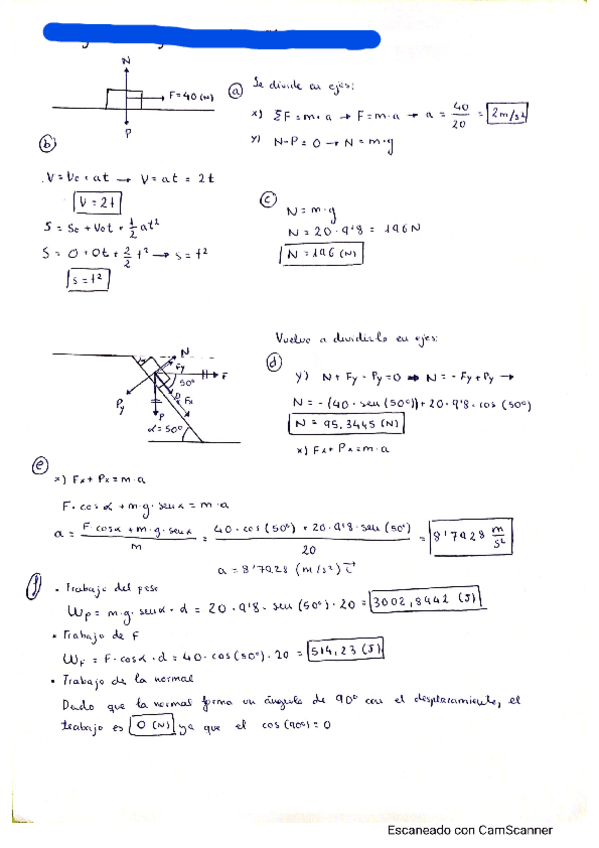 N
F=40(N)
P
(a) Se divide en ejes:
x) ΣF = m·a → F = m·a → a = 40/20 = 2m/s²
y) N-P = 0 → N = m·g
(b)
V = Vo + at → V = at = 2t
V = 2t
S = So + Vot + 1/2 at²
S = 0 + 0t + 2/2 t² → s = t²
s = t²
(c)
N = m·g
N = 20·9'8 = 196N
N = 196 (N)
Vuelve a dividirlo en ejes:
N
Fy
F
50º
Py
P
Fx
α = 50º
(d)
y) N + Fy - Py = 0 → N = - Fy + Py →
N = - (40·sen(50º)) + 20·9'8·cos(50º)
N = 95,3445 (N)
x) Fx + Px = m·a
(e)
x) Fx + Px = m·a
F·cos α + m·g·sen α = m·a
a = F cosα + m·g·senα / m = 40·cos(50º) + 20·9'8·sen(50º) / 20 = 8'7928 m/s²
a = 8'7928 (m/s²) i
(f)
• Trabajo del peso
Wp = m·g·senα·d = 20·9'8·sen(50º)·20 = 3002,8942 (J)
• Trabajo de F
WF = F·cosα·d = 40·cos(50º)·20 = 514,23 (J)
• Trabajo de la normal
Dado que la normal forma un ángulo de 90º con el desplazamiento, el
trabajo es 0 (N) ya que el cos(90º) = 0
Escaneado con CamScanner